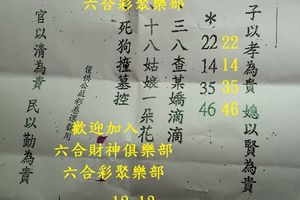 六合彩聚樂部
子以孝為貴 媳以賢為貴
*
22 22
14 14
35 35
46 46
三八查某嬌滴滴
十八姑娘一朵花
死狗撞墓控
官以清為貴 民以勤為貴
歡迎加入
六合財神俱樂部
六合彩聚樂部